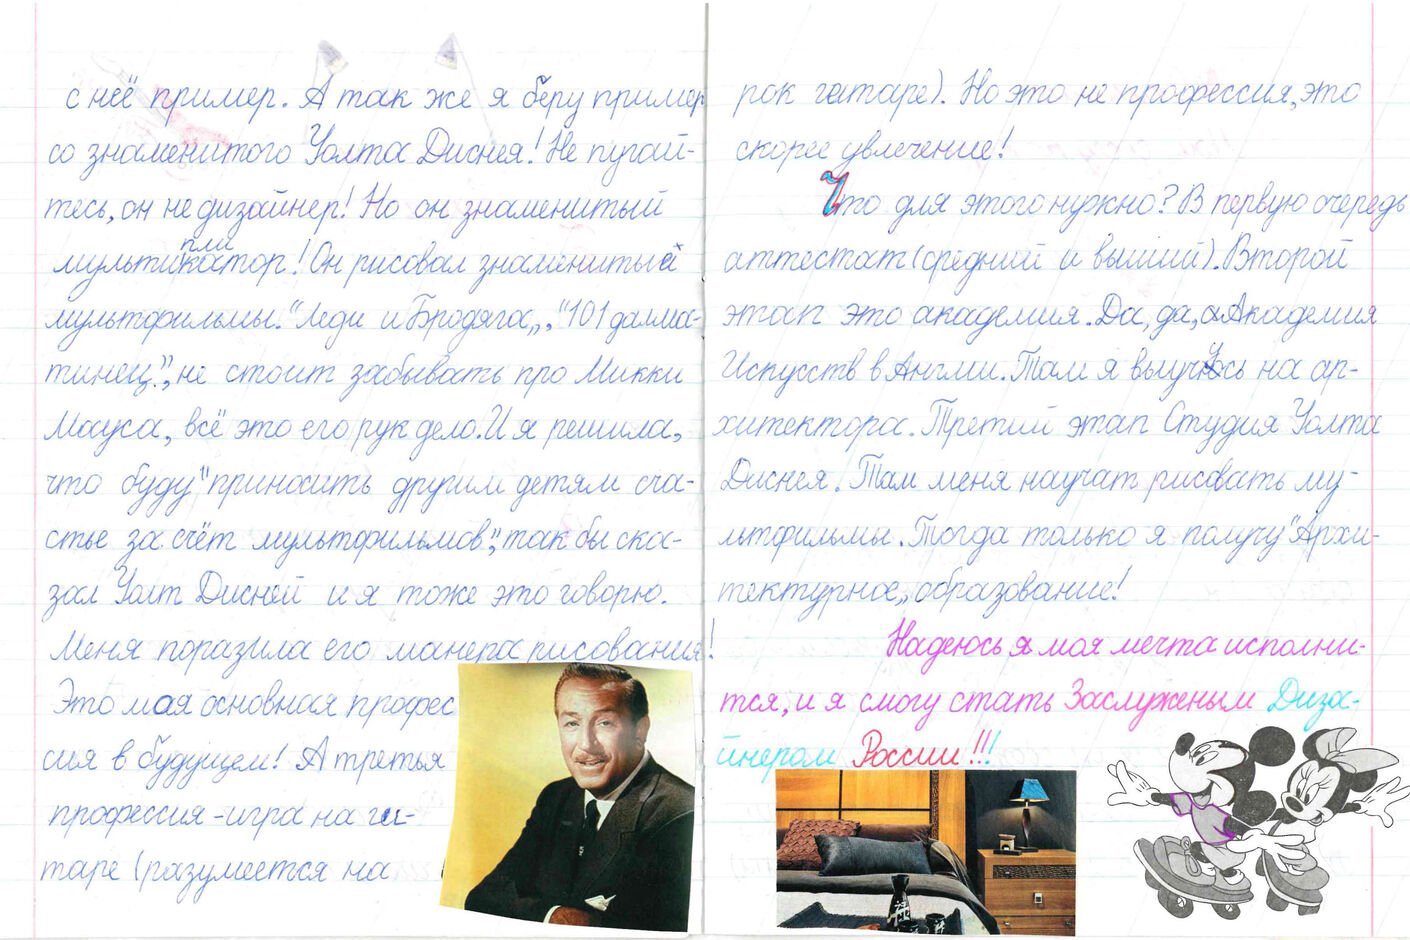 с неё пример. А так же я беру пример
со знаменитого Уолта Диснея! Не пугай-
тесь, он не дизайнер! Но он знаменитый
пли
мультикатор! Он рисовал знаменитые
мультфильмы. "Леди и Бродяга„, "101 далма-
тинец", не стоит забывать про Микки
Мауса, всё это его рук дело. И я решила,
что буду "приносить другим детям сча-
стье за счёт мультфильмов", так бы ска-
зал Уолт Дисней и я тоже это говорю.
Меня поразила его манера рисования!
Это моя основная професс
сия в будущем! А третья
профессия - игра на ги-
таре (разумеется на
рок гитаре). Но это не профессия, это
скорее увлечение!
Что для этого нужно? В первую очередь
аттестат (средний и высший). Второй
этап это академия. Да, да, Академия
Искусств в Англии. Там я выучусь на ар-
хитектора. Третий этап Студия Уолта
Диснея. Там меня научат рисовать му-
льтфильмы. Тогда только я получу "Архи-
тектурное„ образование!
Надеюсь моя мечта исполни-
тся, и я смогу стать Заслуженым Диза-
йнером России!!!
禄